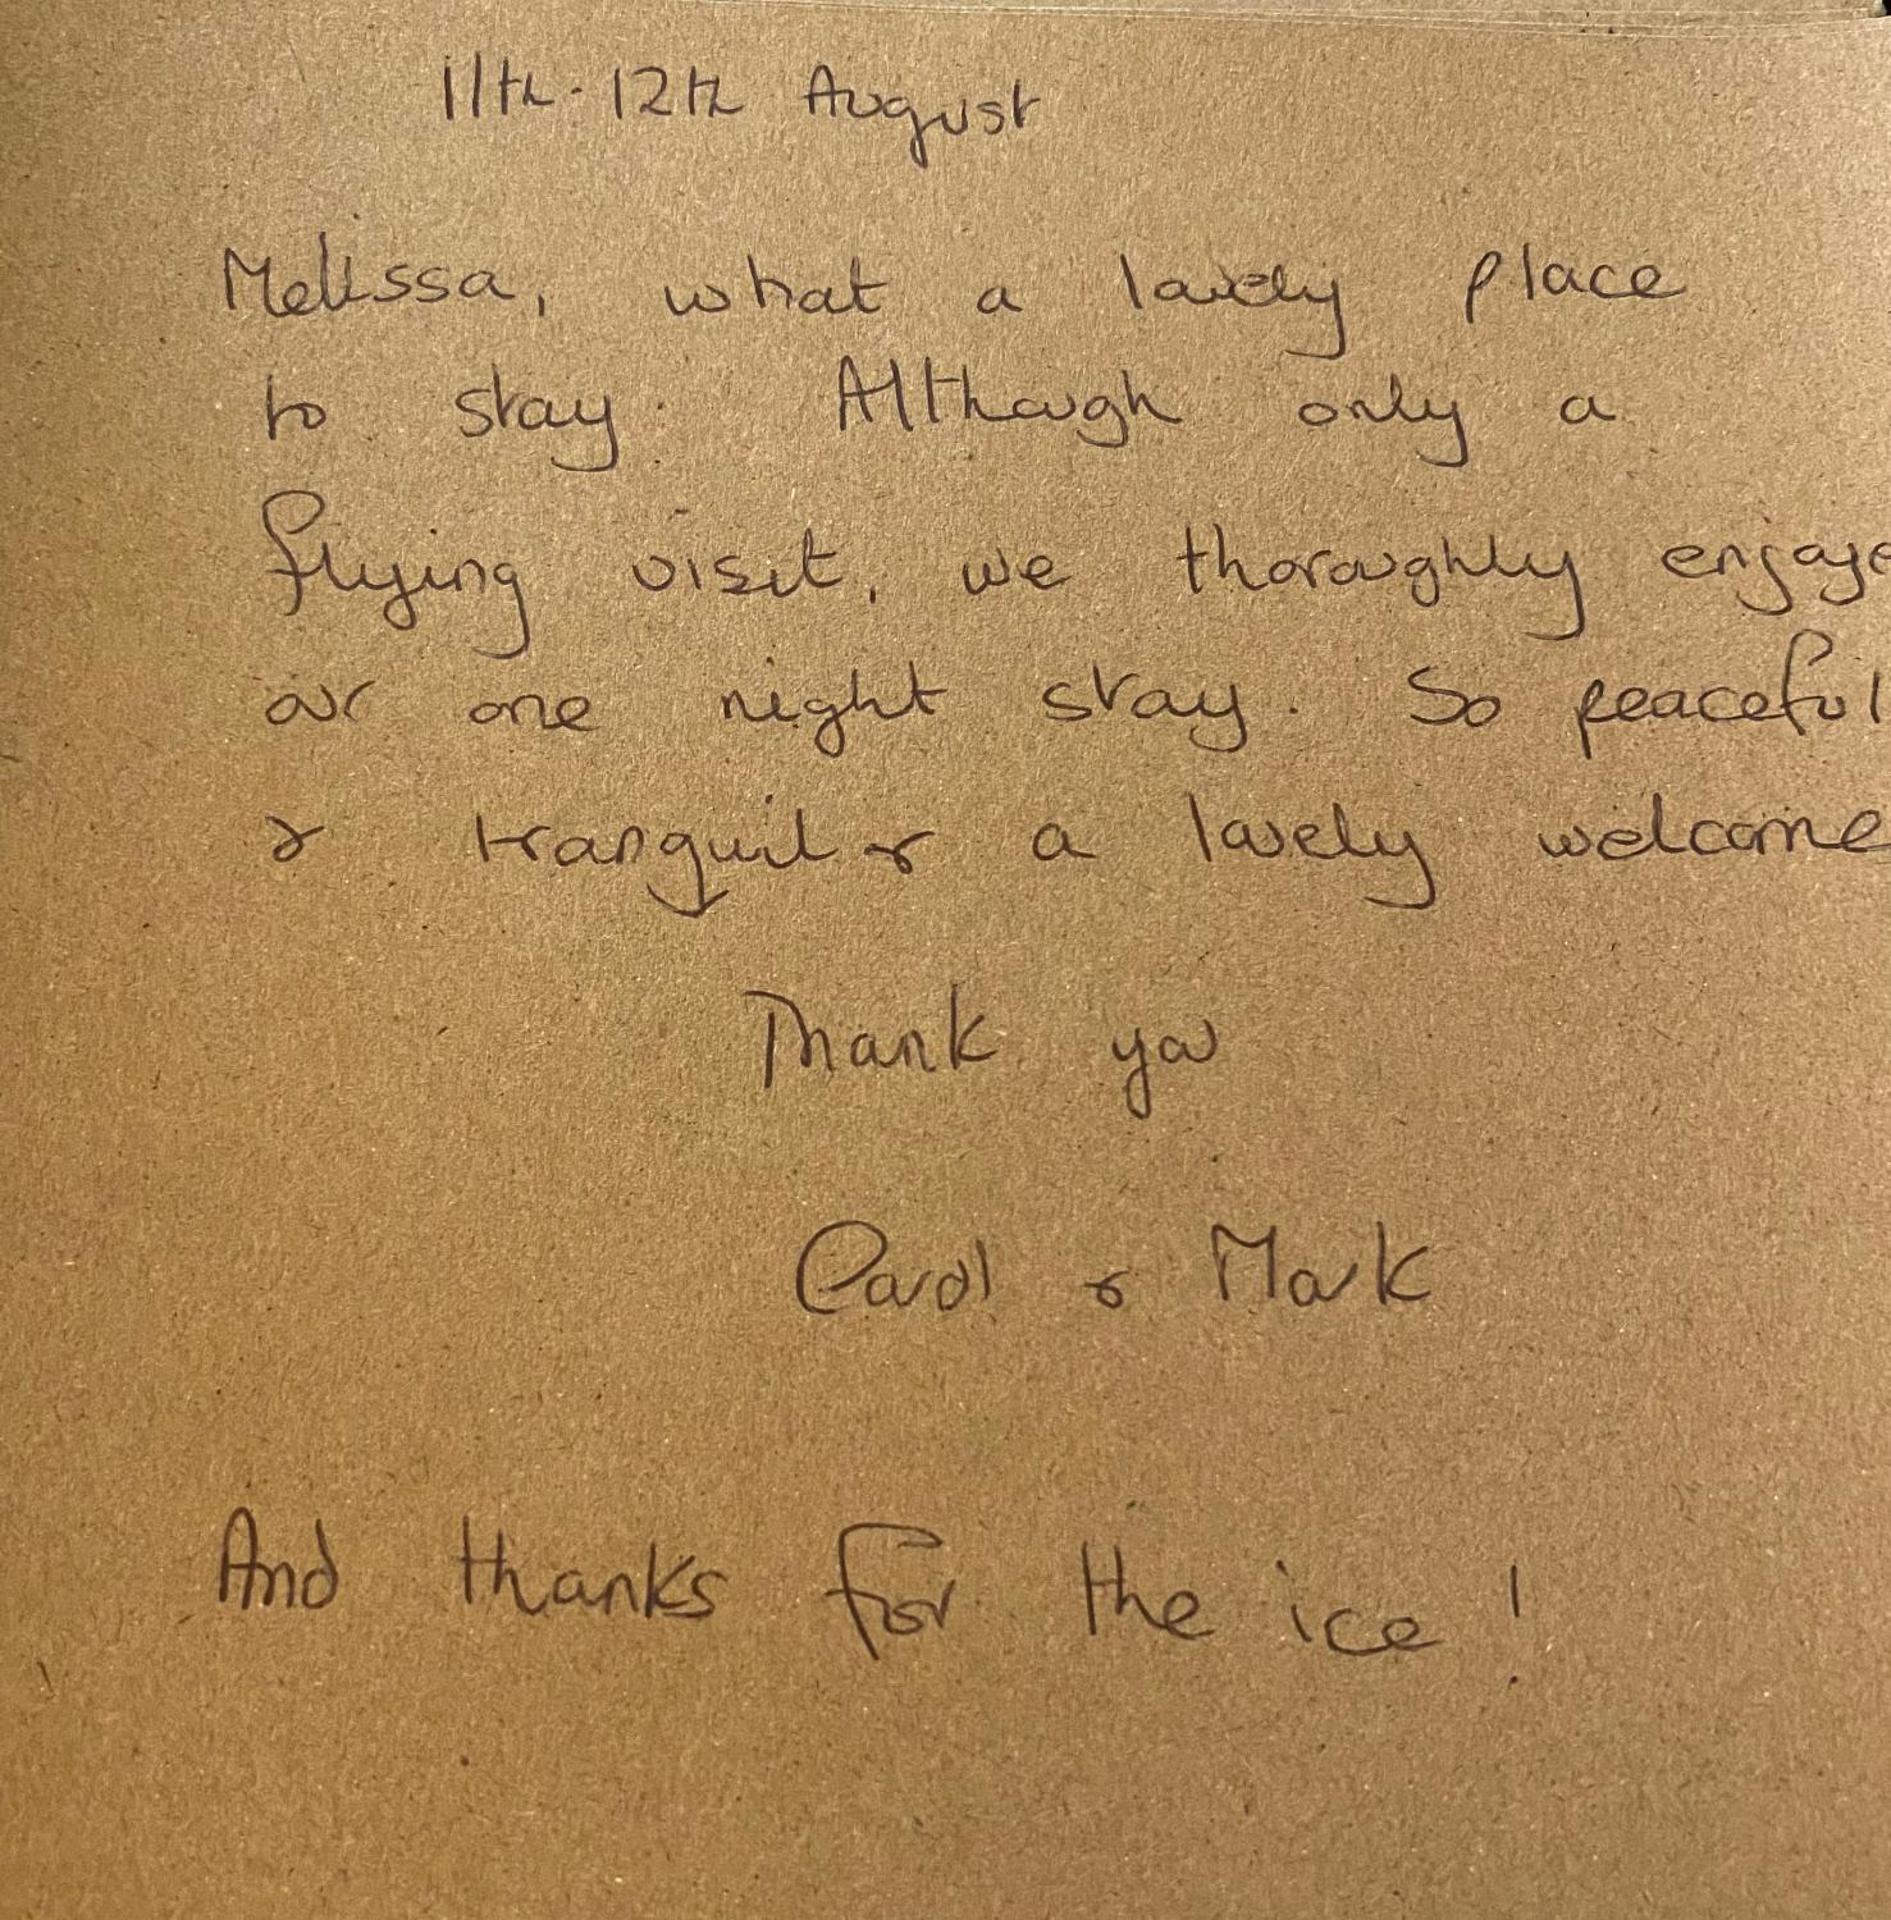 11th - 12th August
Melissa, what a lovely place
to stay. Although only a
flying visit, we thoroughly enjoye
our one night stay. So peaceful
& tranquil & a lovely welcome
Thank you
Carol & Mark
And thanks for the ice!